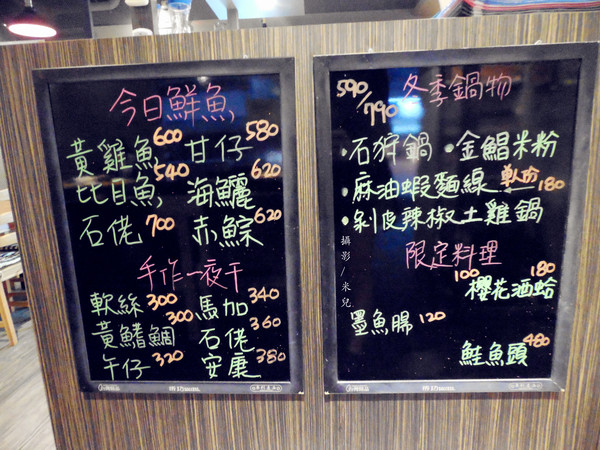 今日鮮魚
黃雞魚 600 甘仔 580
比目魚 540 海鱺 620
石佬 700 赤鯮 620
手作一夜干
軟絲 300 馬加 340
黃鰭鯛 300 石佬 360
午仔 320 安康 380
590/790 冬季鍋物
·石狩鍋 ·金鯧米粉
·麻油蝦麵線 單人份 180
·剝皮辣椒土雞鍋
限定料理
100 180
櫻花酒蛤
墨魚腸 120
鮭魚頭 480
攝影/米兒